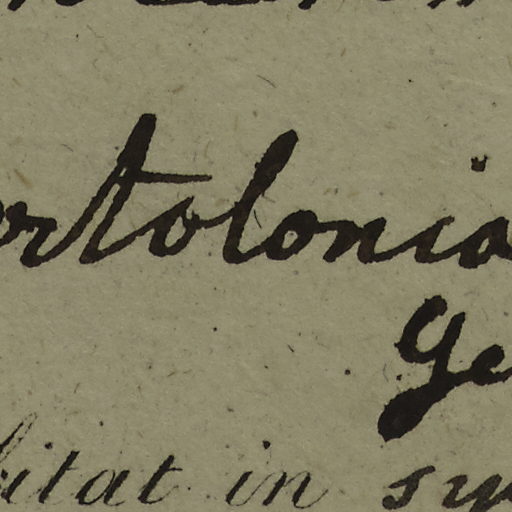 ortolonia
Ge
bitat in sy